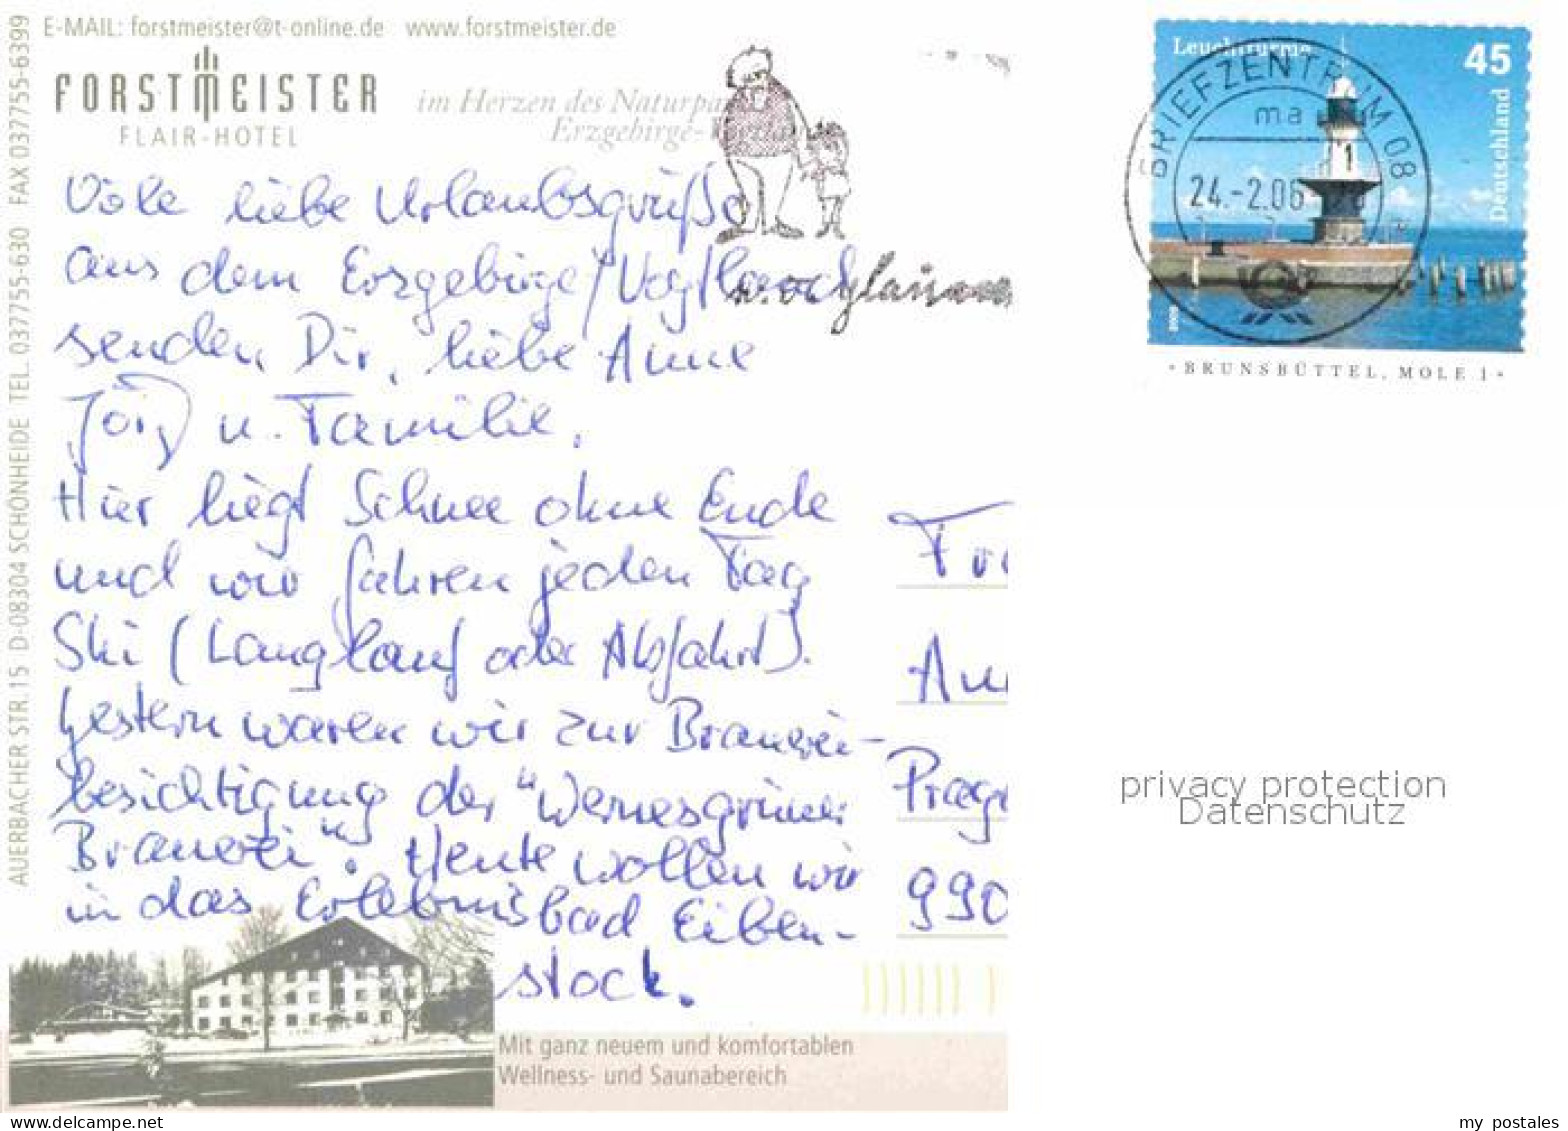 E-MAIL: forstmeister@t-online.de www.forstmeister.de
FORSTMEISTER
FLAIR-HOTEL
im Herzen des Naturpa
Erzgebirge-
AUERBACHER STR.15 D-08304 SCHÖNHEIDE TEL. 037755-630 FAX 037755-6399
Viele liebe Urlaubsgrüße
aus dem Erzgebirge/Vogtland
senden Dir, liebe Anne
Jörg u. Familie.
Hier liegt Schnee ohne Ende
und wir fahren jeden Tag
Ski (Langlauf oder Abfahrt).
Gestern waren wir zur Brauerei-
besichtigung der "Wernesgrüner
Brauerei". Heute wollen wir
in das Erlebnisbad Eiben-
stock.
Mit ganz neuem und komfortablen
Wellness- und Saunabereich
Leuchttürme
45
Deutschland
2006
BRIEFZENTRUM 08
ma
1
24.-2.06
BRUNSBÜTTEL, MOLE 1
Prag
990
privacy protection
Datenschutz
my postales